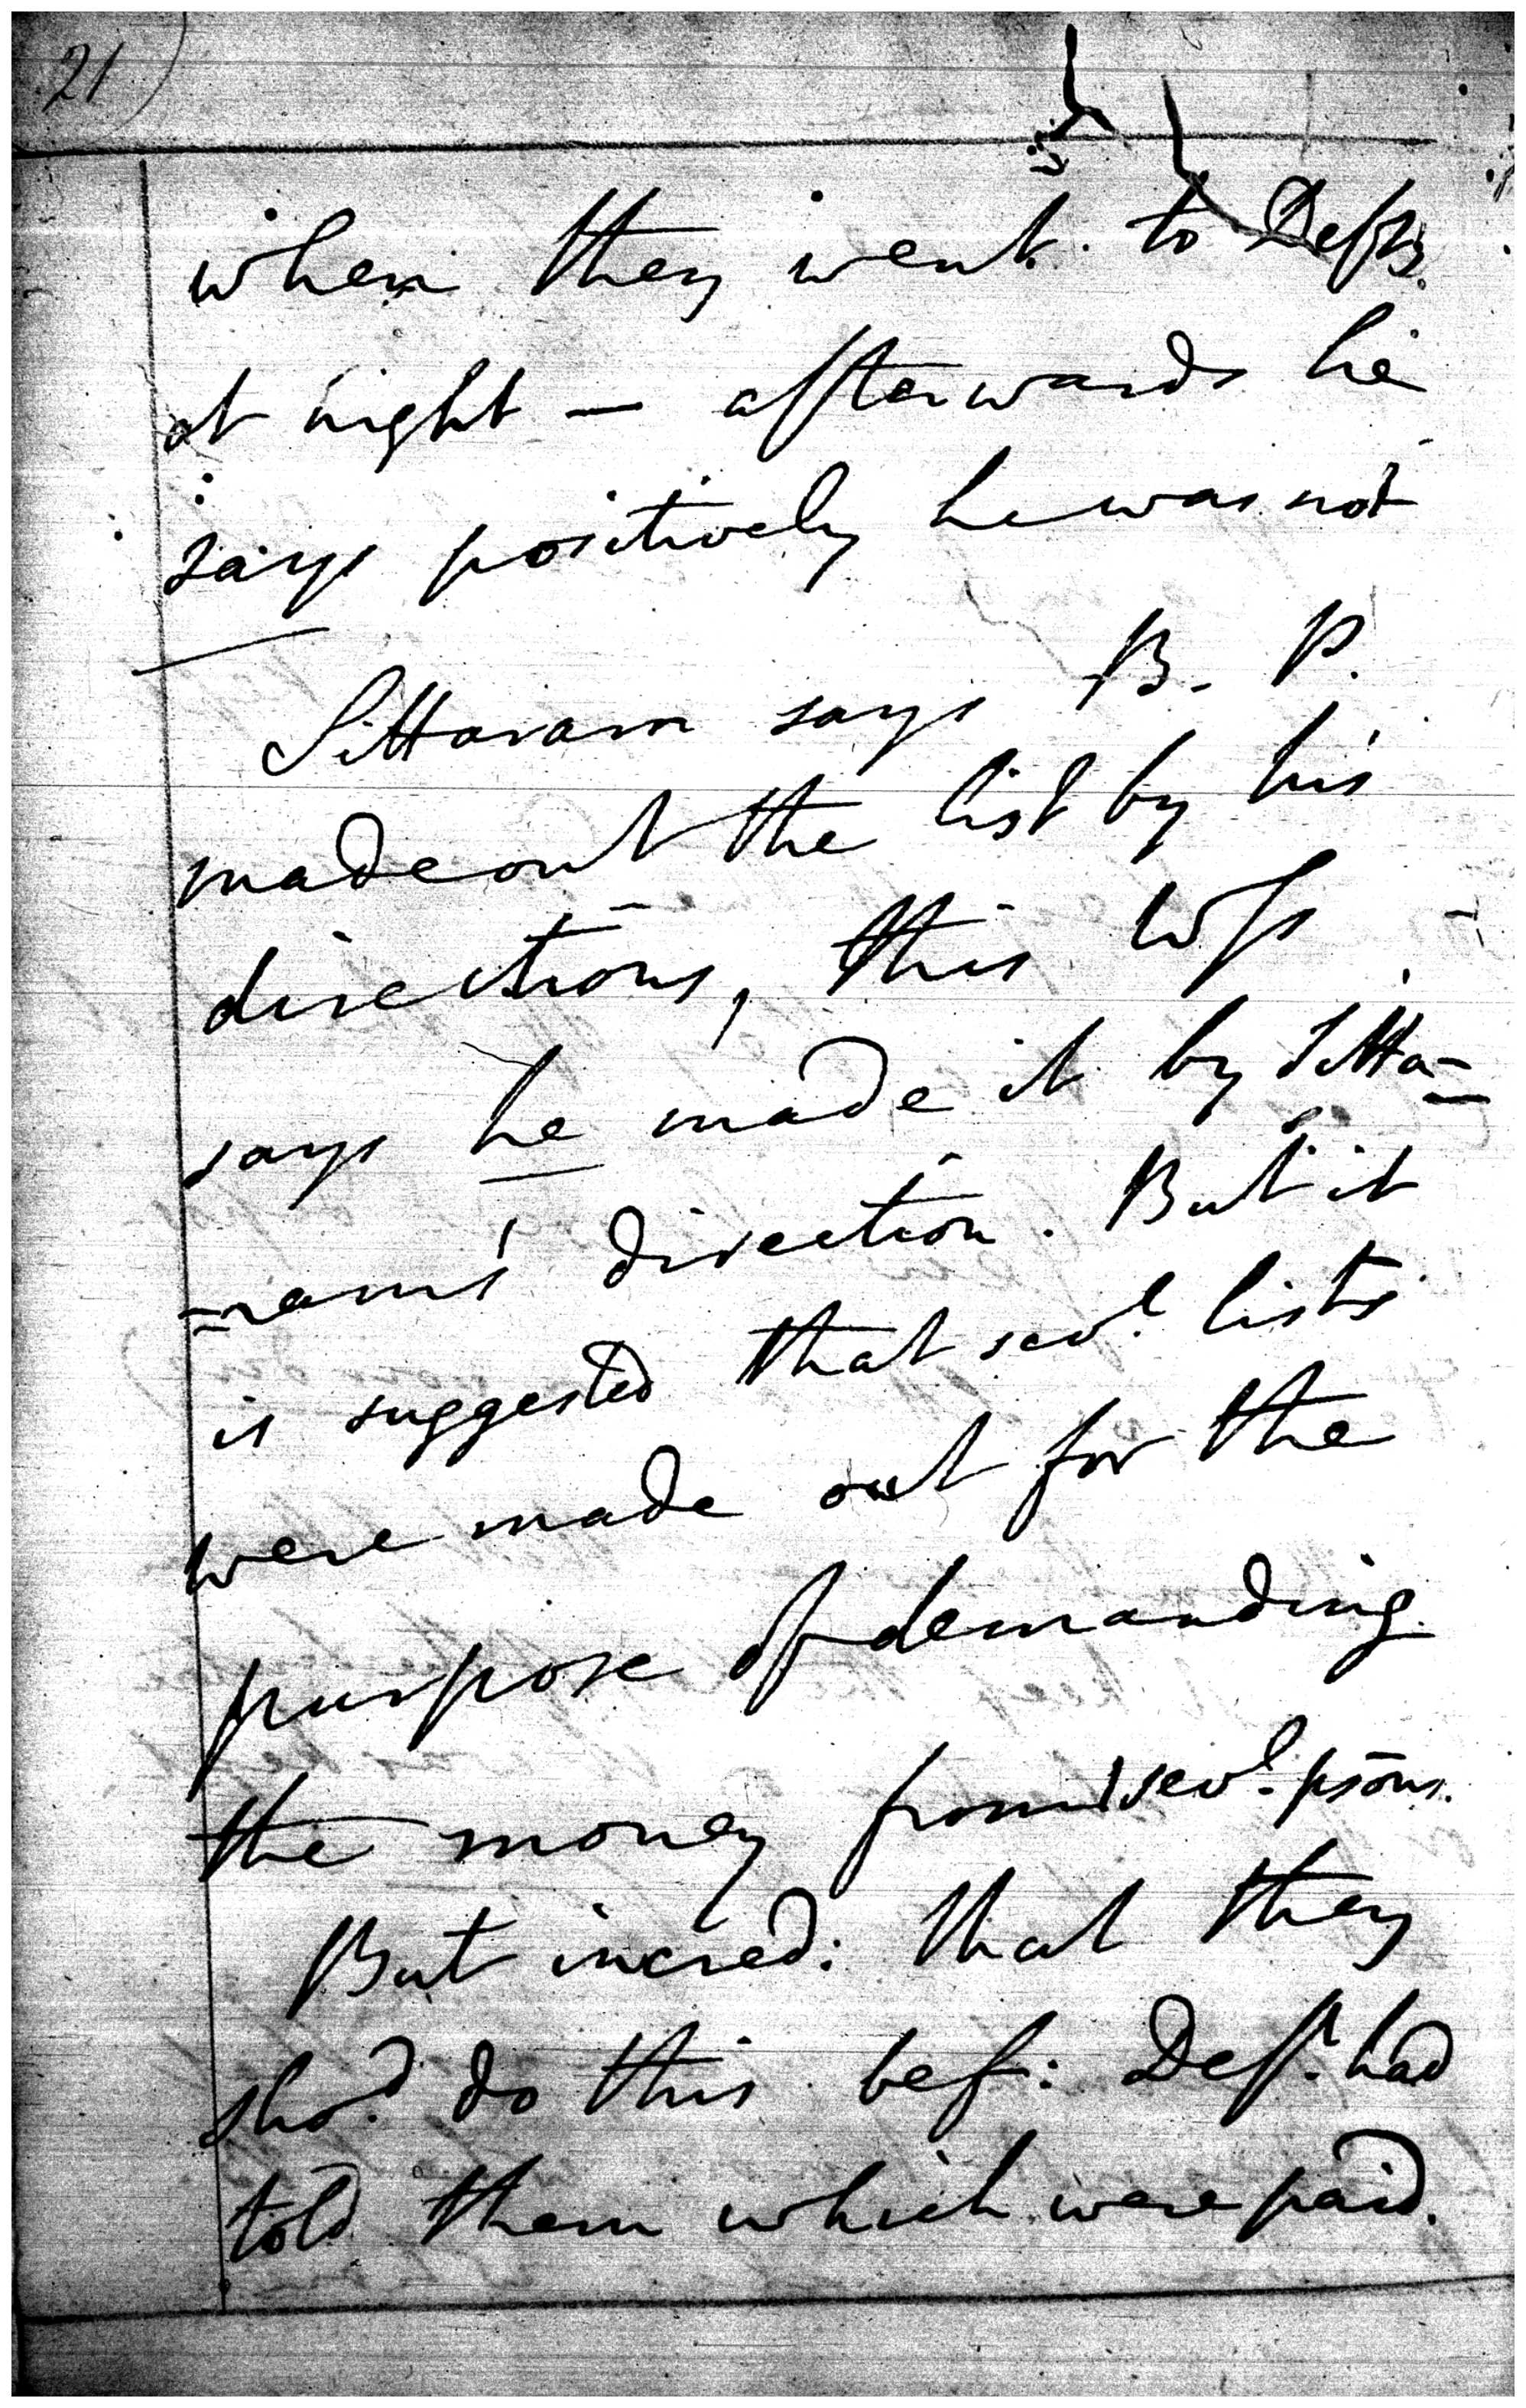 21
when they went to Defts.
at night — afterwards he
says positively he was not
Sittaram says B. P.
made out the list by his
directions, this Wss
says he made it by Sitta=
=ram's direction. But it
is suggested that sevl. lists
were made out for the
purpose of demanding
the money from sevl. psons.
But incred: that they
shod. do this bef: Deft. had
told them which were paid.